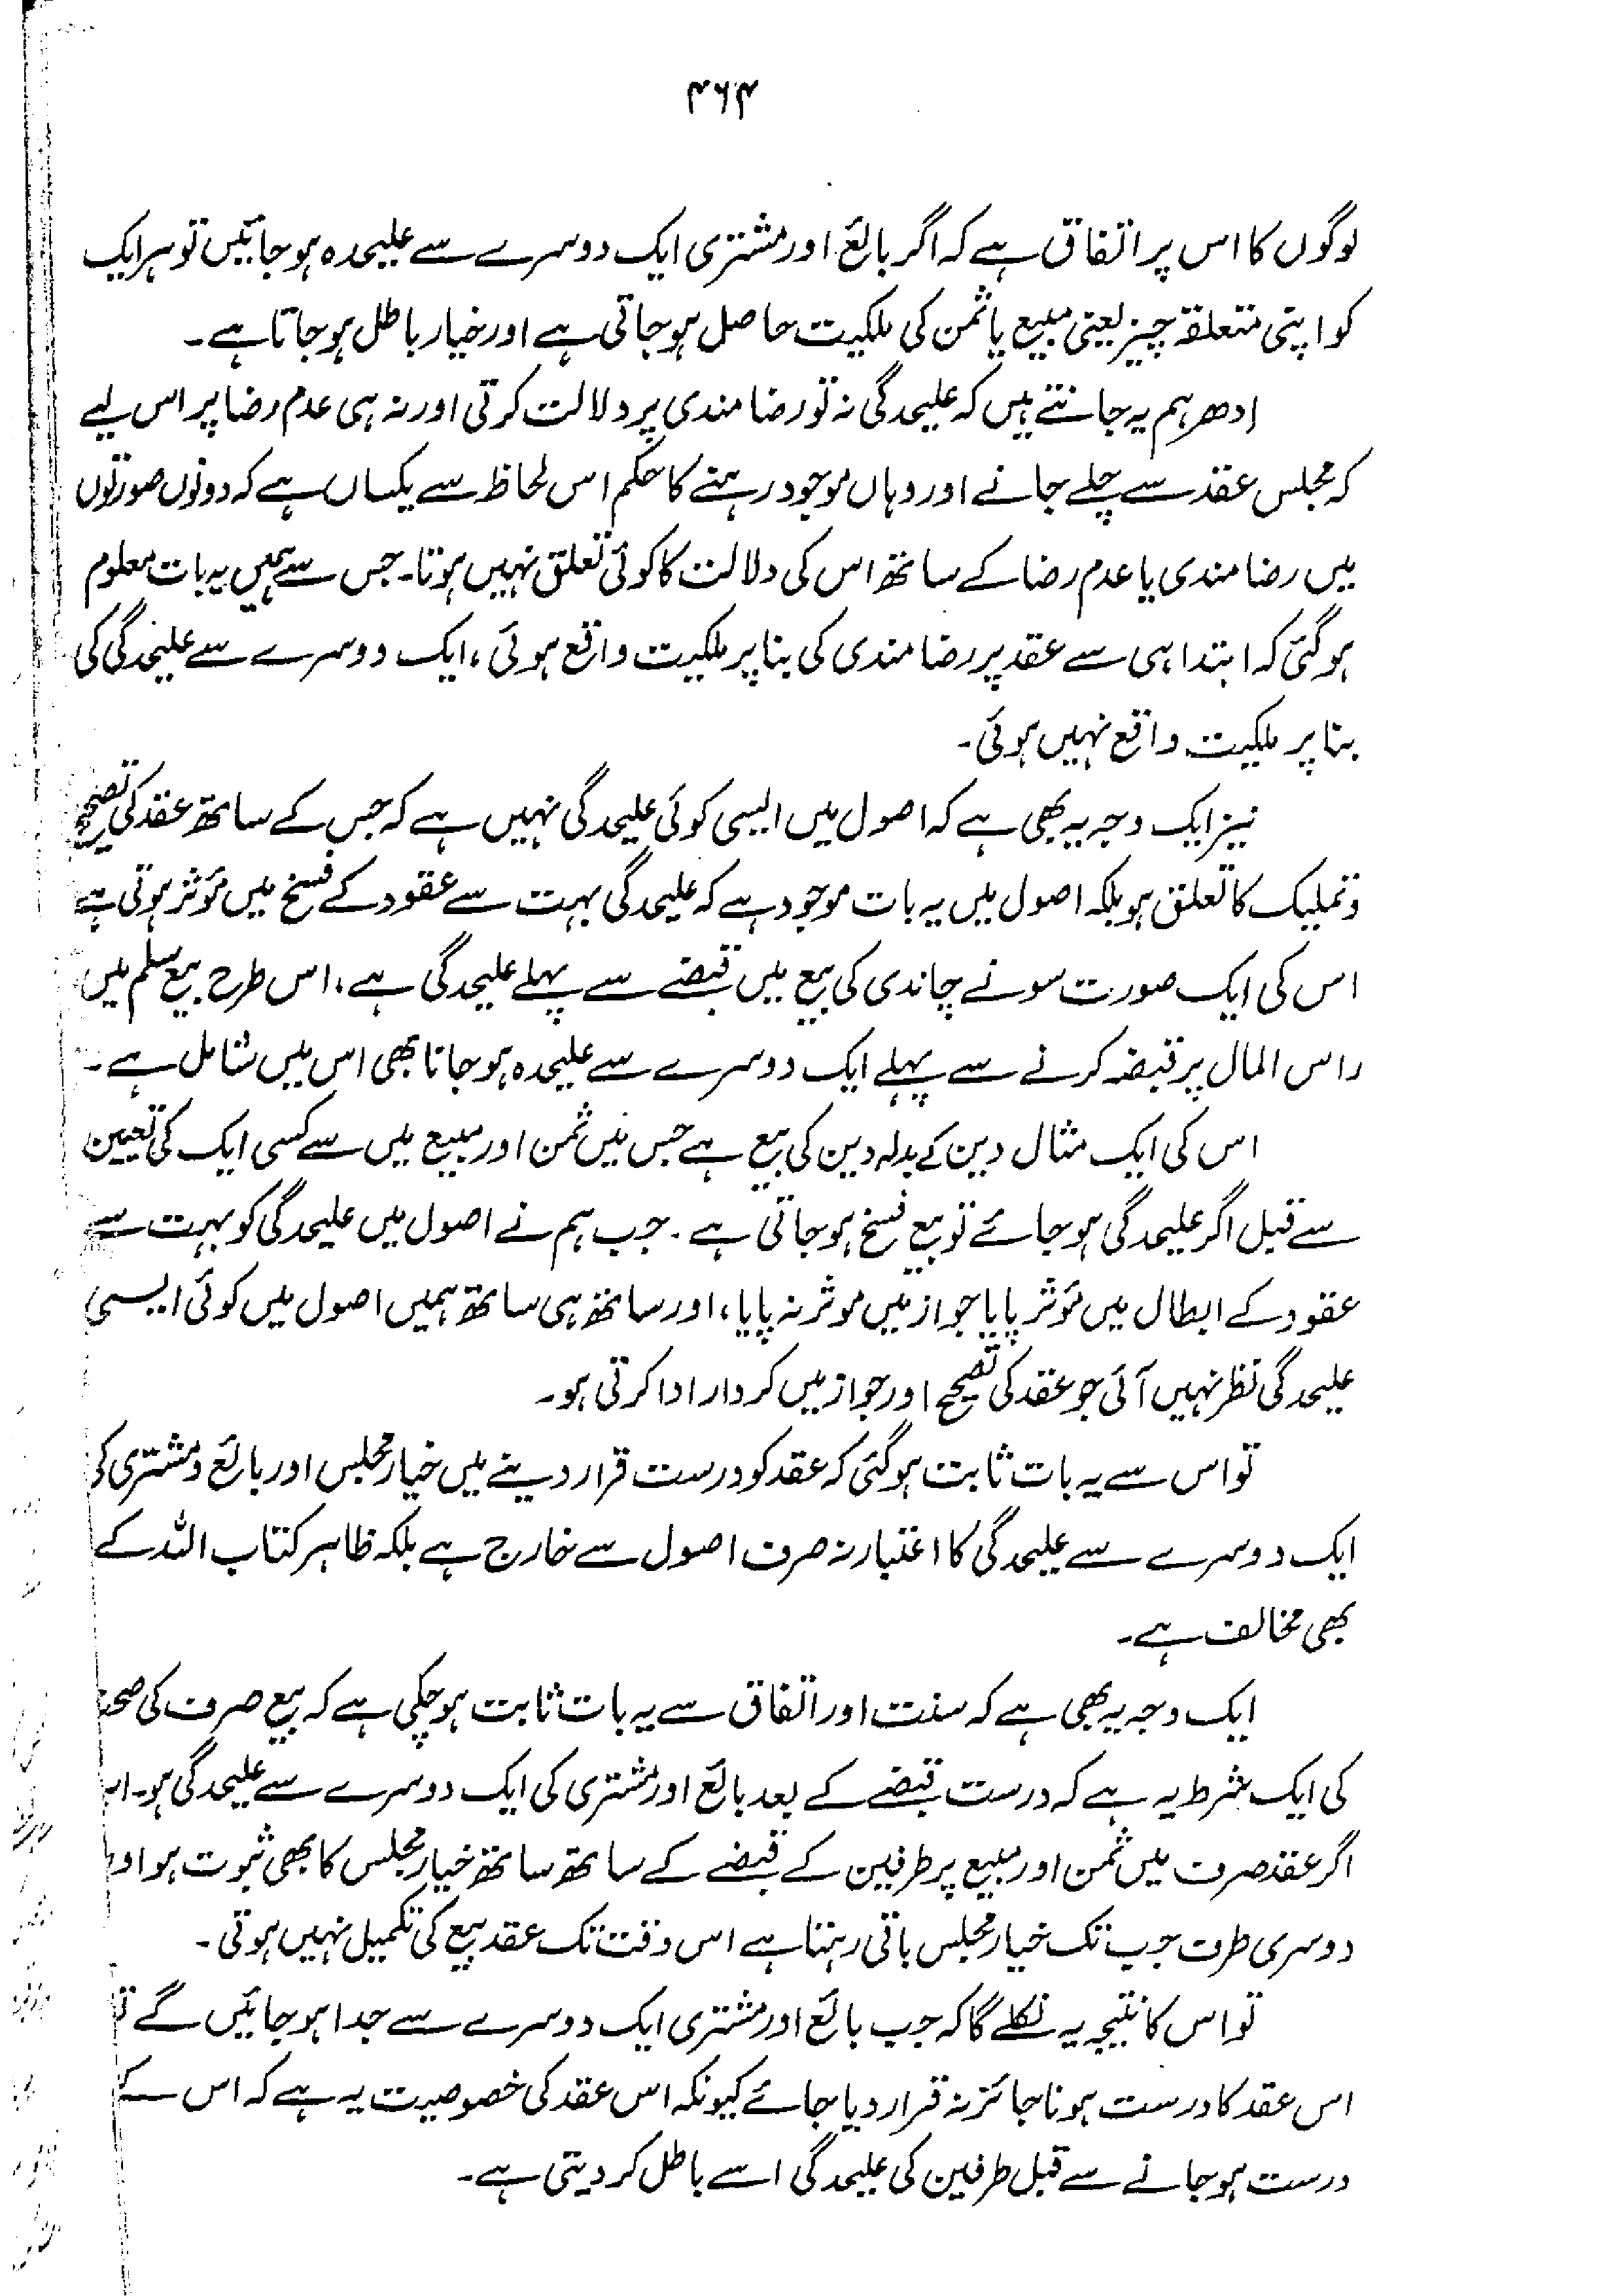 ۴۶۴
لوگوں کا اس پر اتفاق ہے کہ اگر بائع اور مشتری ایک دوسرے سے علیحدہ ہو جائیں تو ہر ایک
کو اپنی متعلقہ چیز یعنی مبیع یا ثمن کی ملکیت حاصل ہو جاتی ہے اور خیار باطل ہو جاتا ہے۔
ادھر ہم یہ جانتے ہیں کہ علیحدگی نہ تو رضامندی پر دلالت کرتی اور نہ ہی عدم رضا پر اس لیے
کہ مجلس عقد سے چلے جانے اور وہاں موجود رہنے کا حکم اس لحاظ سے یکساں ہے کہ دونوں صورتوں
میں رضامندی یا عدم رضا کے ساتھ اس کی دلالت کا کوئی تعلق نہیں ہوتا۔ جس سے ہمیں یہ بات معلوم
ہو گئی کہ ابتدا ہی سے عقد پر رضامندی کی بنا پر ملکیت واقع ہوئی، ایک دوسرے سے علیحدگی کی
بنا پر ملکیت واقع نہیں ہوئی۔
نیز ایک وجہ یہ بھی ہے کہ اصول میں ایسی کوئی علیحدگی نہیں ہے کہ جس کے ساتھ عقد کی تصحیح
و تملیک کا تعلق ہو بلکہ اصول میں یہ بات موجود ہے کہ علیحدگی بہت سے عقود کے فسخ میں مؤثر ہوتی ہے
اس کی ایک صورت سونے چاندی کی بیع میں قبضے سے پہلے علیحدگی ہے، اس طرح بیع سلم میں
راس المال پر قبضہ کرنے سے پہلے ایک دوسرے سے علیحدہ ہو جانا بھی اس میں شامل ہے۔
اس کی ایک مثال دین کے بدلہ دین کی بیع ہے جس میں ثمن اور مبیع میں سے کسی ایک کی تعیین
سے قبل اگر علیحدگی ہو جائے تو بیع فسخ ہو جاتی ہے۔ جب ہم نے اصول میں علیحدگی کو بہت سے
عقود کے ابطال میں مؤثر پایا جواز میں موثر نہ پایا، اور ساتھ ہی ساتھ ہمیں اصول میں کوئی ایسی
علیحدگی نظر نہیں آئی جو عقد کی تصحیح اور جواز میں کردار ادا کرتی ہو۔
تو اس سے یہ بات ثابت ہو گئی کہ عقد کو درست قرار دینے میں خیار مجلس اور بائع و مشتری کی
ایک دوسرے سے علیحدگی کا اعتبار نہ صرف اصول سے خارج ہے بلکہ ظاہر کتاب اللہ کے
بھی مخالف ہے۔
ایک وجہ یہ بھی ہے کہ سنت اور اتفاق سے یہ بات ثابت ہو چکی ہے کہ بیع صرف کی
کی ایک شرط یہ ہے کہ درست قبضے کے بعد بائع اور مشتری کی ایک دوسرے سے علیحدگی ہو۔
اگر عقد صرف میں ثمن اور مبیع پر طرفین کے قبضے کے ساتھ ساتھ خیار مجلس کا بھی ثبوت ہو
دوسری طرف جب تک خیار مجلس باقی رہتا ہے اس وقت تک عقد بیع کی تکمیل نہیں ہوتی۔
تو اس کا نتیجہ یہ نکلے گا کہ جب بائع اور مشتری ایک دوسرے سے جدا ہو جائیں گے
اس عقد کا درست ہونا جائز نہ قرار دیا جائے کیونکہ اس عقد کی خصوصیت یہ ہے کہ اس کے
درست ہو جانے سے قبل طرفین کی علیحدگی اسے باطل کر دیتی ہے۔